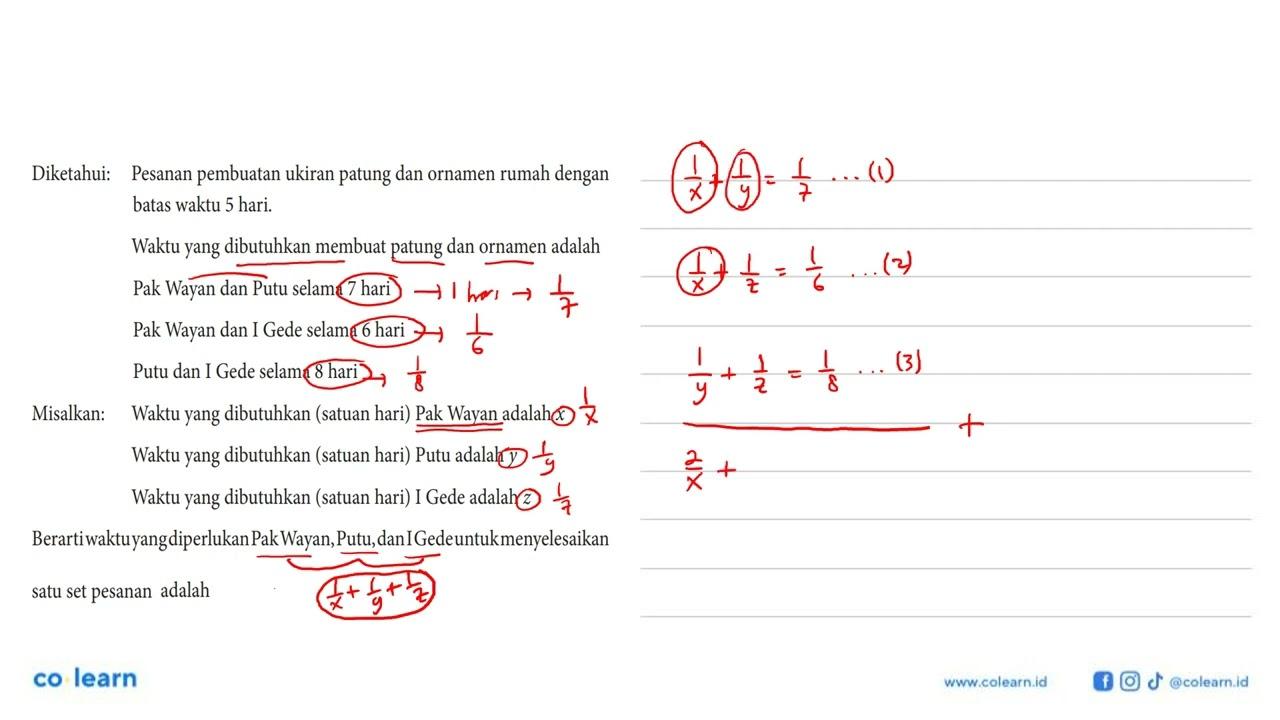 Diketahui: Pesanan pembuatan ukiran patung dan ornamen rumah dengan
batas waktu 5 hari.
Waktu yang dibutuhkan membuat patung dan ornamen adalah
Pak Wayan dan Putu selama 7 hari → 1 hari → 1/7
Pak Wayan dan I Gede selama 6 hari → 1/6
Putu dan I Gede selama 8 hari → 1/8
Misalkan: Waktu yang dibutuhkan (satuan hari) Pak Wayan adalah x 1/x
Waktu yang dibutuhkan (satuan hari) Putu adalah y 1/y
Waktu yang dibutuhkan (satuan hari) I Gede adalah z 1/z
Berarti waktu yang diperlukan Pak Wayan, Putu, dan I Gede untuk menyelesaikan
satu set pesanan adalah 1/x + 1/y + 1/z
1/x + 1/y = 1/7 ... (1)
1/x + 1/z = 1/6 ... (2)
1/y + 1/z = 1/8 ... (3)
+
2/x +
co learn
www.colearn.id @colearn.id